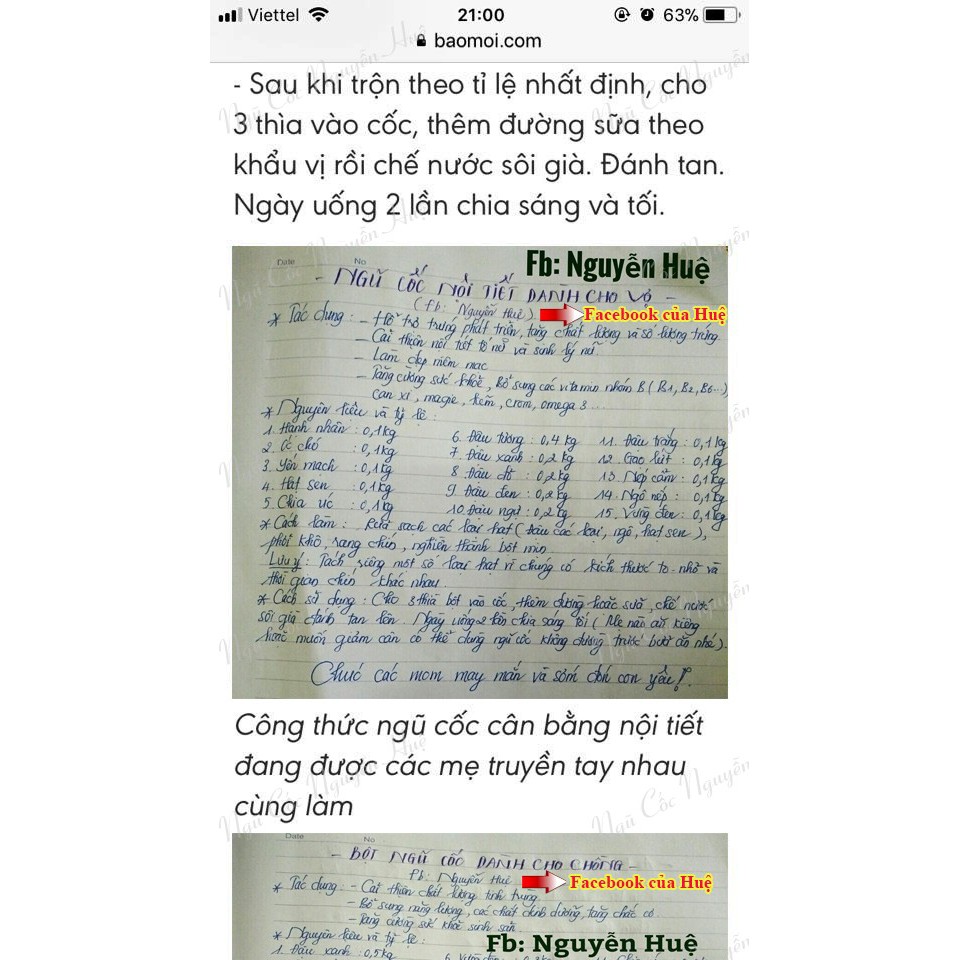 Viettel 21:00 63%
baomoi.com
- Sau khi trộn theo tỉ lệ nhất định, cho
3 thìa vào cốc, thêm đường sữa theo
khẩu vị rồi chế nước sôi già. Đánh tan.
Ngày uống 2 lần chia sáng và tối.
Date No
Fb: Nguyễn Huệ
- NGŨ CỐC NỘI TIẾT DÀNH CHO VỢ -
(fb: Nguyễn Huệ) Facebook của Huệ
* Tác dụng: - Hỗ trợ trứng phát triển, tăng chất lượng và số lượng trứng
- Cải thiện nội tiết tố nữ và sinh lý nữ.
- Làm đẹp mềm mạc
- Tăng cường sức khỏe, bổ sung các vitamin nhóm B (B1, B2, B6...)
can xi, magie, kẽm, crom, omega 3...
* Nguyên liệu và tỷ lệ:
1. Hạnh nhân: 0,1kg 6. Đậu tương: 0,4 kg 11. Đậu trắng: 0,1kg
2. Óc chó: 0,1kg 7. Đậu xanh: 0,2kg 12. Gạo lứt: 0,1kg
3. Yến mạch: 0,1kg 8. Đậu đỏ: 0,2kg 13. Nếp cẩm: 0,1kg
4. Hạt sen: 0,1kg 9. Đậu đen: 0,2kg 14. Ngô nếp: 0,1kg
5. Chia úc: 0,1kg 10. Đậu ngự: 0,2kg 15. Vừng đen: 0,1kg
* Cách làm: Rửa sạch các loại hạt (đậu các loại, ngô, hạt sen),
phơi khô, rang chín, nghiền thành bột mịn.
Lưu ý: Tách riêng một số loại hạt vì chúng có kích thước to - nhỏ và
thời gian chín khác nhau.
* Cách sử dụng: Cho 3 thìa bột vào cốc, thêm đường hoặc sữa, chế nước
sôi già đánh tan lên. Ngày uống 2 lần chia sáng tối (Mẹ nào ăn kiêng
hoặc muốn giảm cân có thể dùng ngũ cốc không đường trước bữa ăn nhé).
Chúc các mom may mắn và sớm đón con yêu!
Công thức ngũ cốc cân bằng nội tiết
đang được các mẹ truyền tay nhau
cùng làm
Date No
- BỘT NGŨ CỐC DÀNH CHO CHỒNG -
fb: Nguyễn Huệ Facebook của Huệ
* Tác dụng: - Cải thiện chất lượng tinh trùng
- Bổ sung năng lượng, các chất dinh dưỡng, tăng chắc cơ
- Tăng cường sức khỏe sinh sản.
* Nguyên liệu và tỷ lệ:
Fb: Nguyễn Huệ
1. Đậu xanh: 0,5kg
Ngũ Cốc Nguyễn Huệ